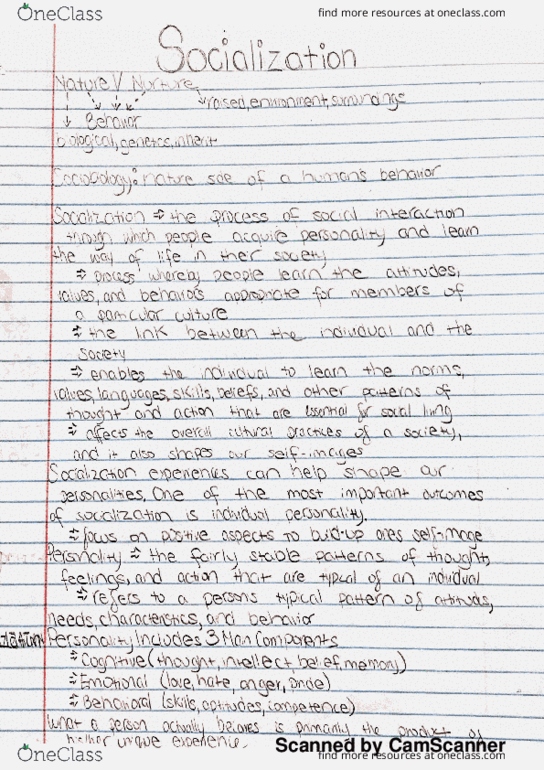 OneClass find more resources at oneclass.com
Socialization
Nature V Nurture
raised, environment, surroundings
Behavior
biological, genetics, inherit
Sociobiology: nature side of a human's behavior
Socialization ⇒ the process of social interaction
through which people acquire personality and learn
the way of life in their society
⇒ process whereby people learn the attitudes,
values, and behaviors appropriate for members of
a particular culture
⇒ the link between the individual and the
society
⇒ enables the individual to learn the norms,
values, languages, skills, beliefs, and other patterns of
thought and action that are essential for social living
⇒ affects the overall cultural practices of a society,
and it also shapes our self-images
Socialization experiences can help shape our
personalities. One of the most important outcomes
of socialization is individual personality.
⇒ focus on positive aspects to build-up ones self-image
Personality ⇒ the fairly stable patterns of thought,
feelings, and action that are typical of an individual
⇒ refers to a persons typical pattern of attitudes,
needs, characteristics, and behavior
Personality Includes 3 Main Components
⇒ Cognitive (thought, intellect belief, memory)
⇒ Emotional (love, hate, anger, pride)
⇒ Behavioral (skills, aptitudes, competence)
What a person actually believes is primarily the product of
his/her unique experience.
Scanned by CamScanner
OneClass find more resources at oneclass.com